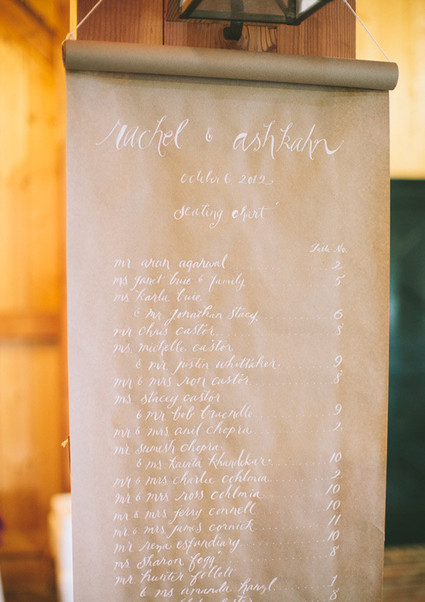 rachel & ashkahn
october 6, 2012
seating chart
Table No.
mr. arun agarwal 2
ms. janet buie & family 5
ms. karla buie
& mr. jonathan stacy 6
mr. chris castor 8
ms. michelle castor
& mr. justin whittaker 9
mr & mrs ron castor 8
ms. stacey castor
& mr bob
mr & mrs anil chopra 2
mr sumesh chopra
& ms kavita khandekar 10
mr & mrs charlie cohlmia 2
mr & mrs ross cohlmia 10
mr & mrs jerry connell 10
mr & mrs james cornick 11
mr. rema esfandiary 10
ms. sharon fegg 8
mr hunter follett
& ms amanda 1